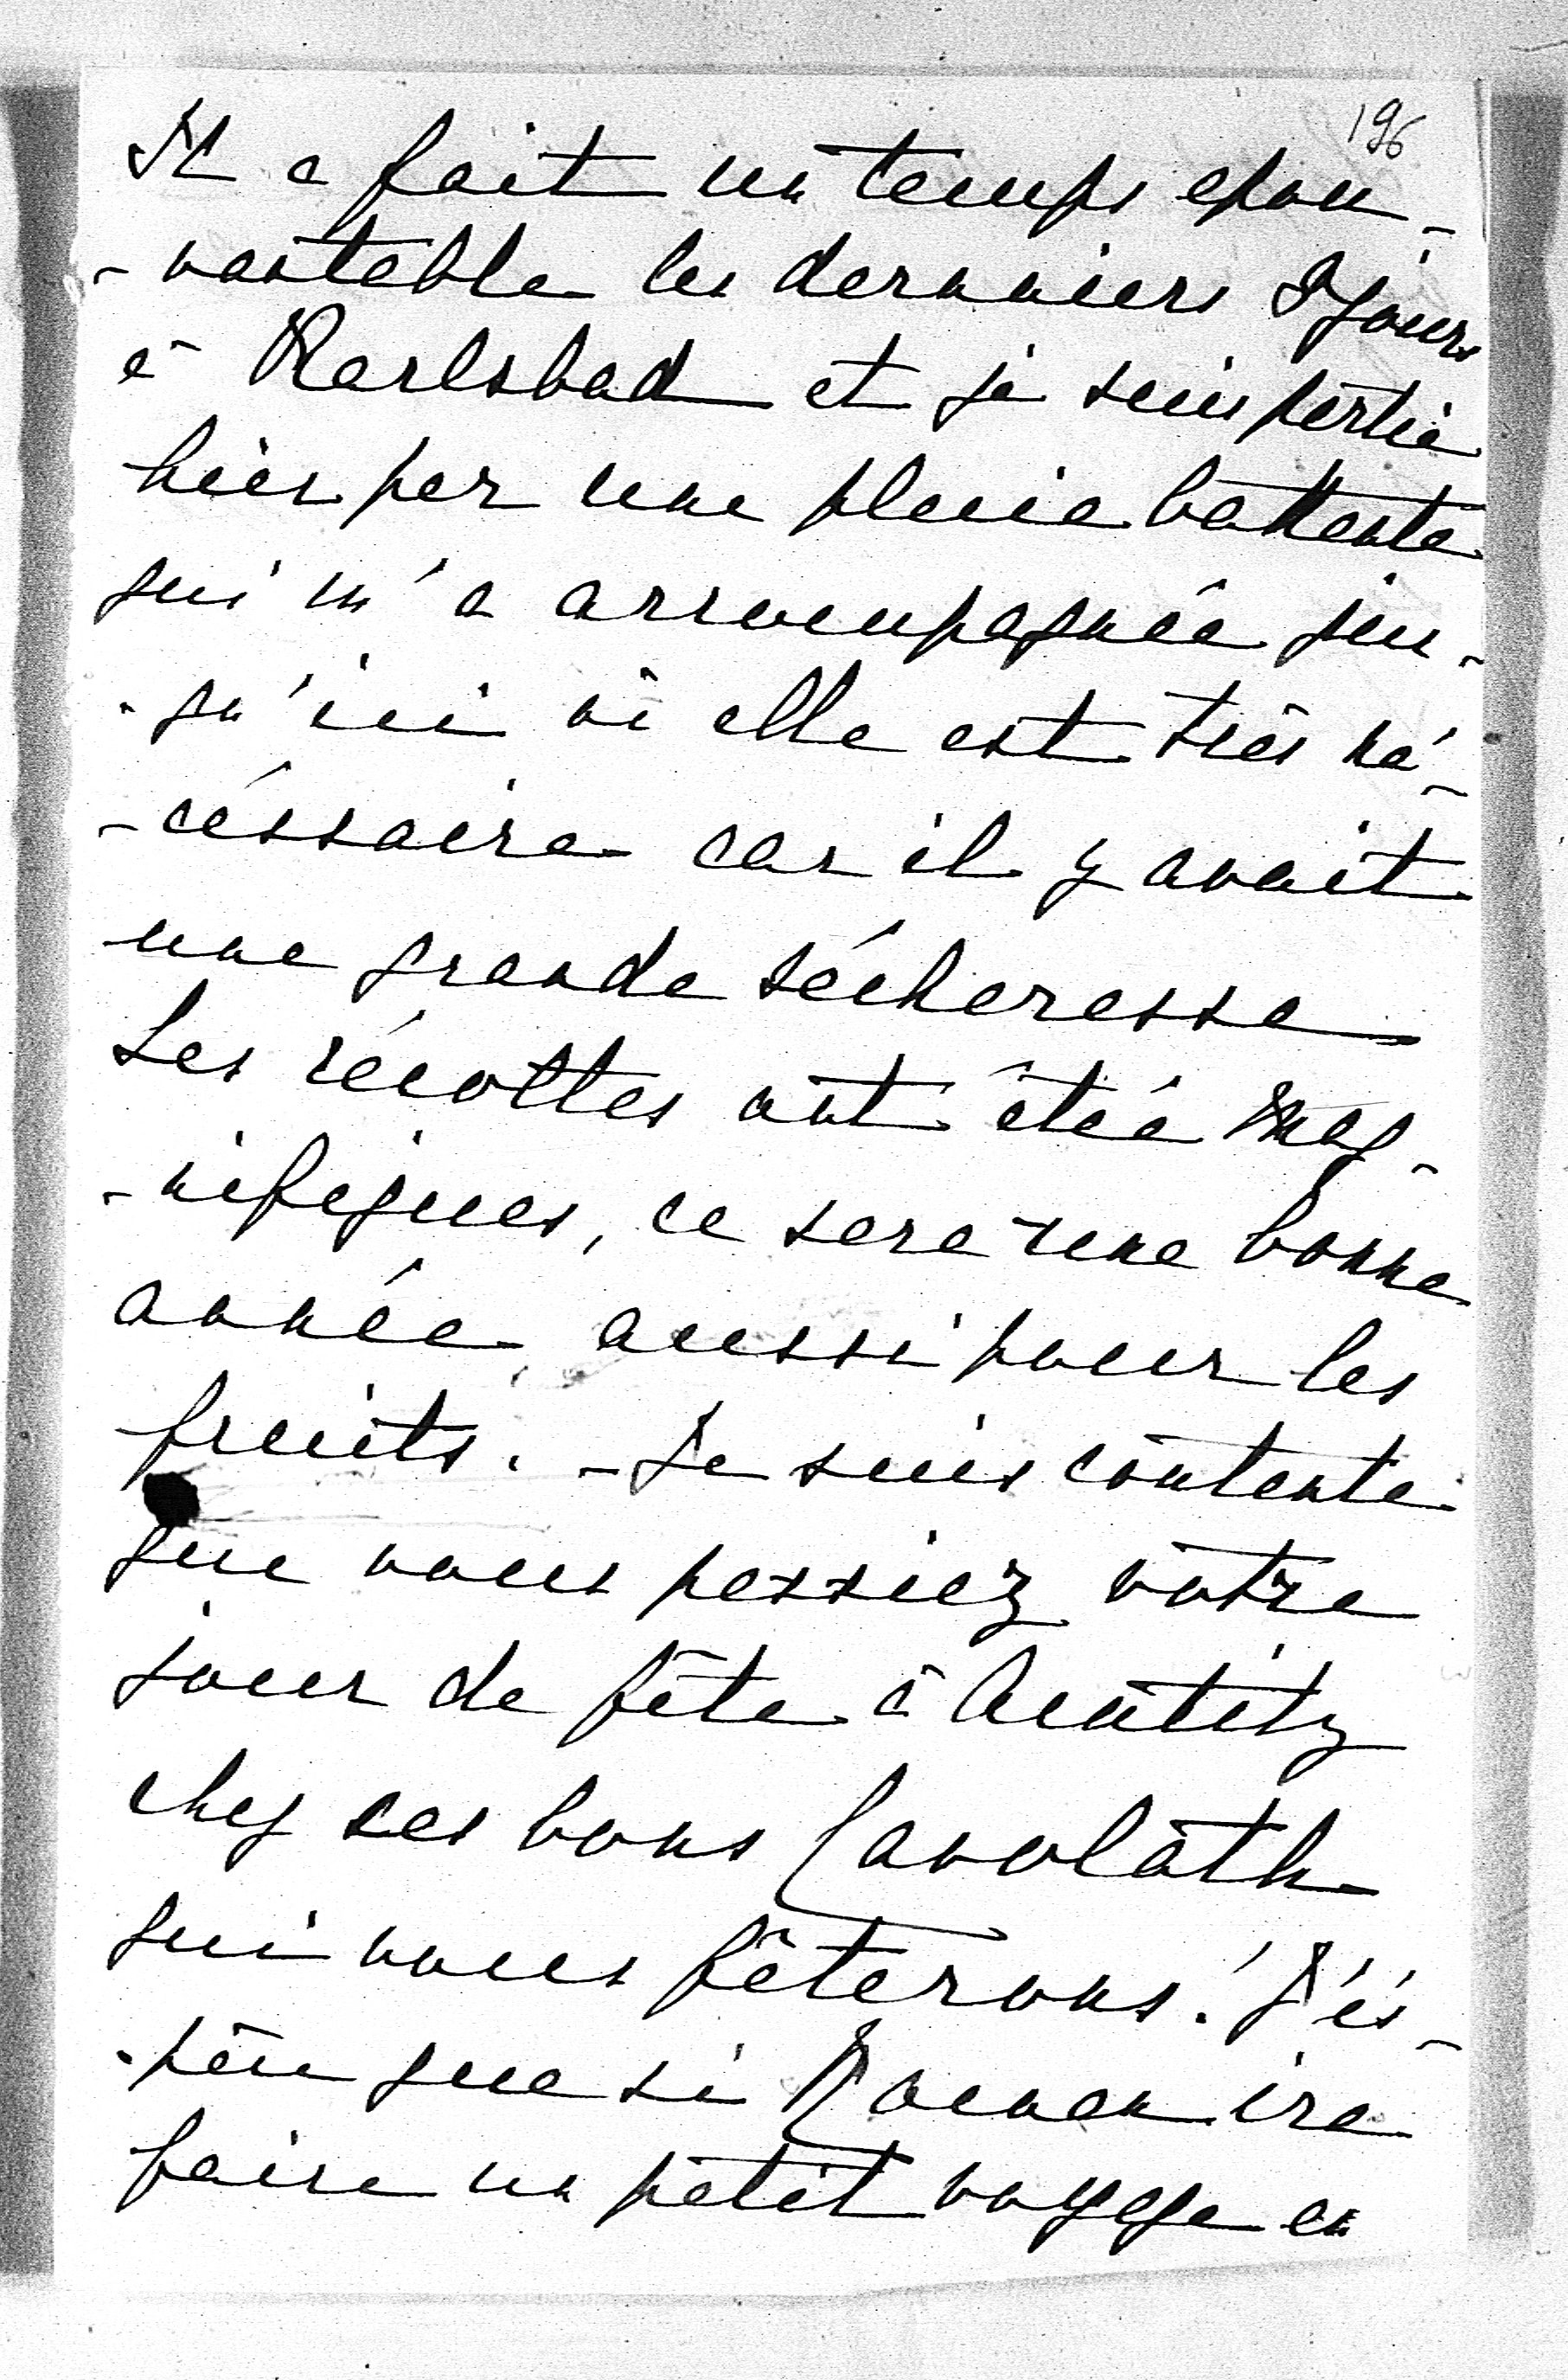 196
Il a fait un temps epou-
-vantable les derniers jours
à Karlsbad et je suis partie
hier par une pluie battante
qui m'a accompagnée jus-
-qu'ici où elle est très né-
-céssaire car il y avait
une grande sécheresse
Les récoltes ont êtée mag-
-nifiques, ce sera une bonne
année, aussi pour les
fruits. - Je suis contente
que vous passiez votre
jour de fête à
chez ces bons Carolath
qui vous fêterons! J'és-
-père que si ira
faire un petit voyage en